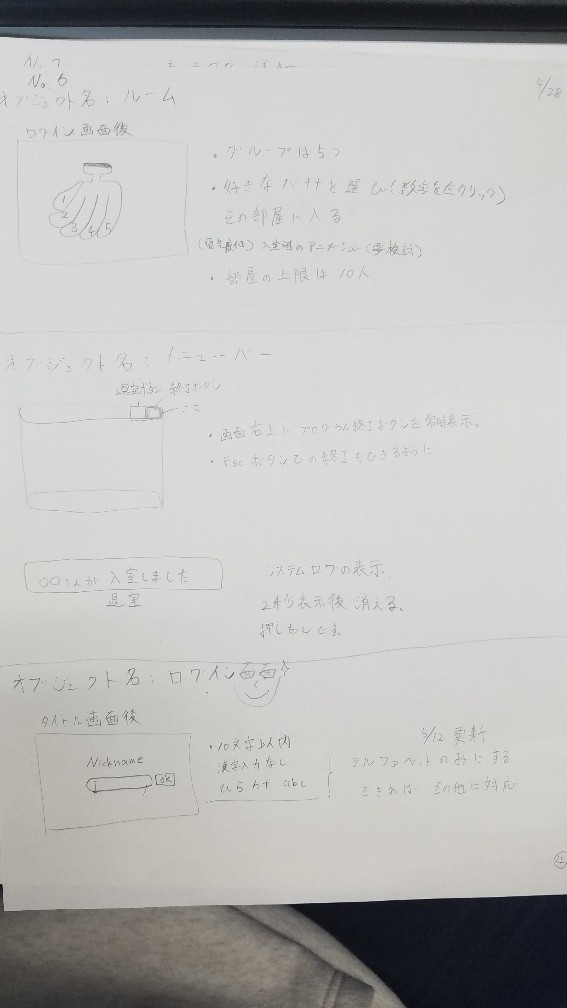 No.7
No.6
4/28
オブジェクト名:ルーム
ログイン画面後
1
2
3
4
5
・グループは5つ
・好きなだけを選び(数字を左クリック)
その部屋に入る
入室時のアニメーション(要検討)
・部屋の上限は10人
オブジェクト名:メニューバー
退室ボタン 終了ボタン
ここ
・画面右上にプログラム終了ボタンを常時表示。
・Escボタンでの終了もできるように
〇〇さんが入室しました
退室
システムログの表示
2秒表示後消える。
押し出しです。
オブジェクト名:ログイン画面
タイトル画面後
Nickname
OK
・10文字以内
漢字入力なし
ひら カナ abc
5/12 更新
アルファベットのみにする
できれば その他に対応
④